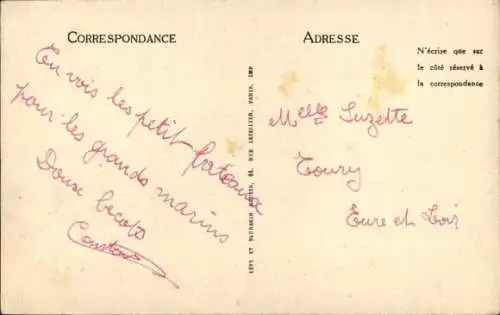 CORRESPONDANCE
En vois les petit bateaux
pour les grands marins
Doux becots
ADRESSE
N'écrire que sur
le côté réservé à
la correspondance
Melle Suzette
Toury
Eure et Loir
LEVY ET NEURDEIN RÉUNIS, 44, RUE LETELLIER, PARIS, IMP